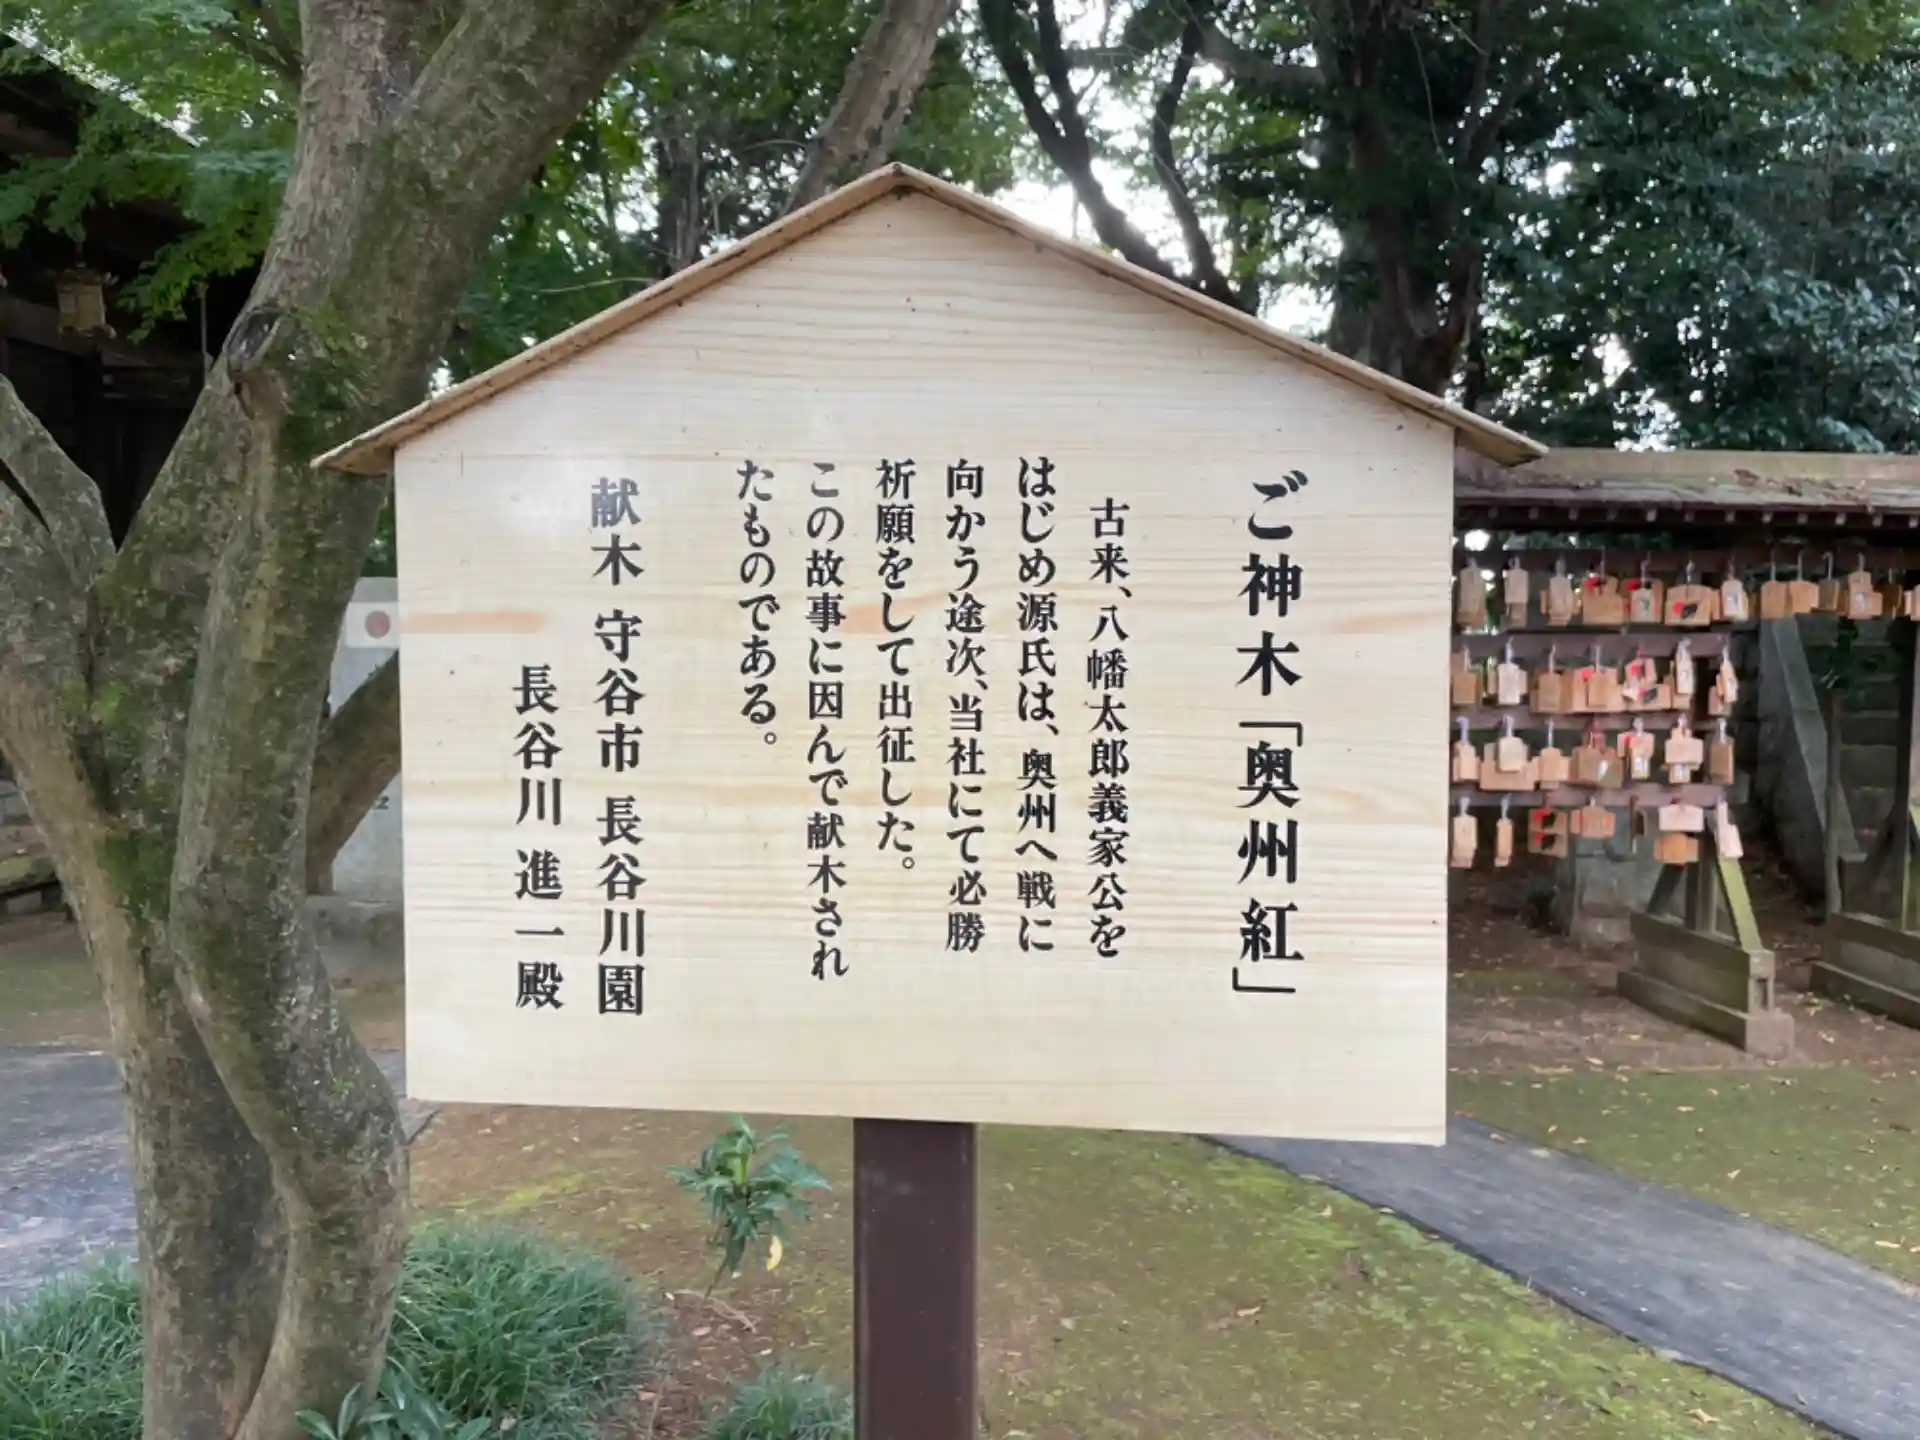 ご神木「奥州紅」
古来、八幡太郎義家公を
はじめ源氏は、奥州へ戦に
向かう途次、当社にて必勝
祈願をして出征した。
この故事に因んで献木され
たものである。
献木 守谷市 長谷川園
長谷川 進一殿